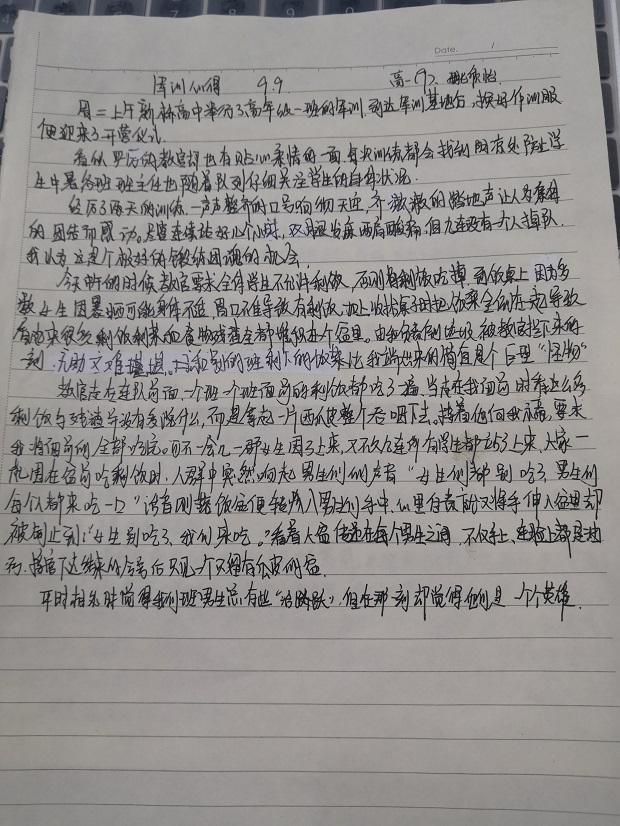 Date. 1
军训心得 9.9 高一(7).
周二上午新 高中举行了高年级一班的军训,到达军训基地后,换好作训服
便迎来了开营仪式.
看似严厉的教官却也有贴心柔情的一面,每次训练都会找到阴凉处防止学
生中暑,各班班主任也跟着队列仔细关注学生的身体状况.
经历了两天的训练,一声声整齐的口号向彻天边,齐 的踏地声让人为
的团结而感动.尽管连续站好几个小时,双腿发麻两肩酸痛,但九连没有一个人掉队.
我认为这是个很好的锻炼团魂的机会.
今天中午的时候教官要求全体学生不允许剩饭,否则将剩饭吃掉,到饭桌上因为多
数女生因暴晒可能身体不适,胃口不佳导致有剩饭,加上收拾桌子时把饭菜全倒在一起导致
看起来很多,剩饭剩菜和食物残渣全都堆积在个盆里.由我负责倒 被教官拦下来的一
刻,无助又难堪, 别的班剩下的饭菜比我端出来的简直是个巨型“怪物”
教官走在连队前面,一个班一个班面前的剩饭都吃了一遍,当走在我面前时看这么多
剩饭与残渣并没有多说什么,而是拿起一片西瓜皮整个吞咽下去.接着他向我示意,要求
我将面前的全部吃完.可不一会儿一群女生围了上来,又不久九连所有学生都站了上来,大家一
起围在盆前吃剩饭时,人群中突然响起男生们的声音“女生们都别吃了,男生们
每个人都来吃一口”话音刚落饭盆便转移入男生们手中,心里自责的又将手伸入盆里却
被制止到:“女生别吃了,我们来吃.”看着人盆传递在每个男生之间,不仅手上、连脸上都是
,教官下达结束的命令后只见一个又留有瓜皮的盆
平时相处时觉得我们班男生总有些“ ”,但在那一刻却觉得他们是一个个英雄.